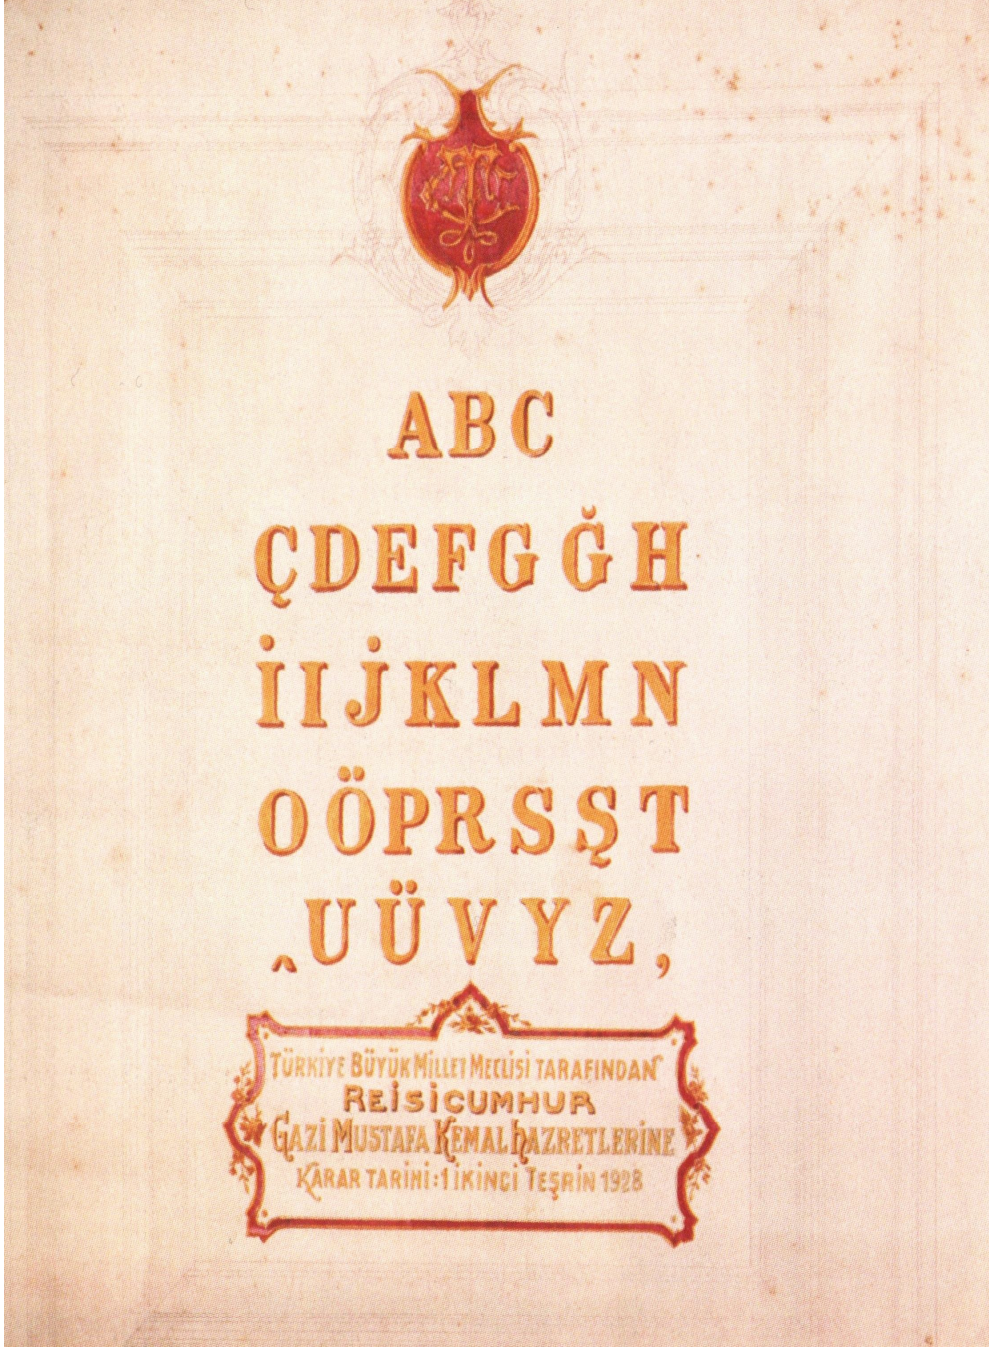 TC
A B C
Ç D E F G Ğ H
İ I J K L M N
O Ö P R S Ş T
^ U Ü V Y Z ,
TÜRKİYE BÜYÜK MİLLET MECLİSİ TARAFINDAN
REİSİCUMHUR
GAZİ MUSTAFA KEMAL HAZRETLERİNE
KARAR TARİHİ : 1 İKİNCİ TEŞRİN 1928